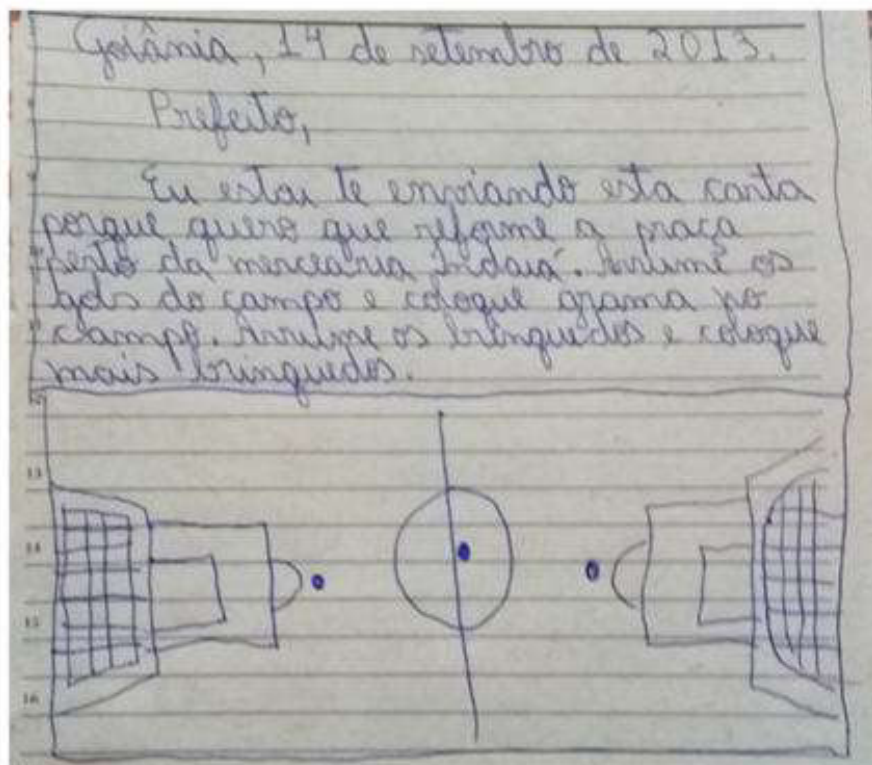 Goiânia, 14 de setembro de 2013.
Prefeito,
Eu estou te enviando esta carta
porque quero que reforme a praça
perto da mercearia Indaiá. Arrume os
gols do campo e coloque grama no
campo. Arrume os brinquedos e coloque
mais brinquedos.
13
14
15
16